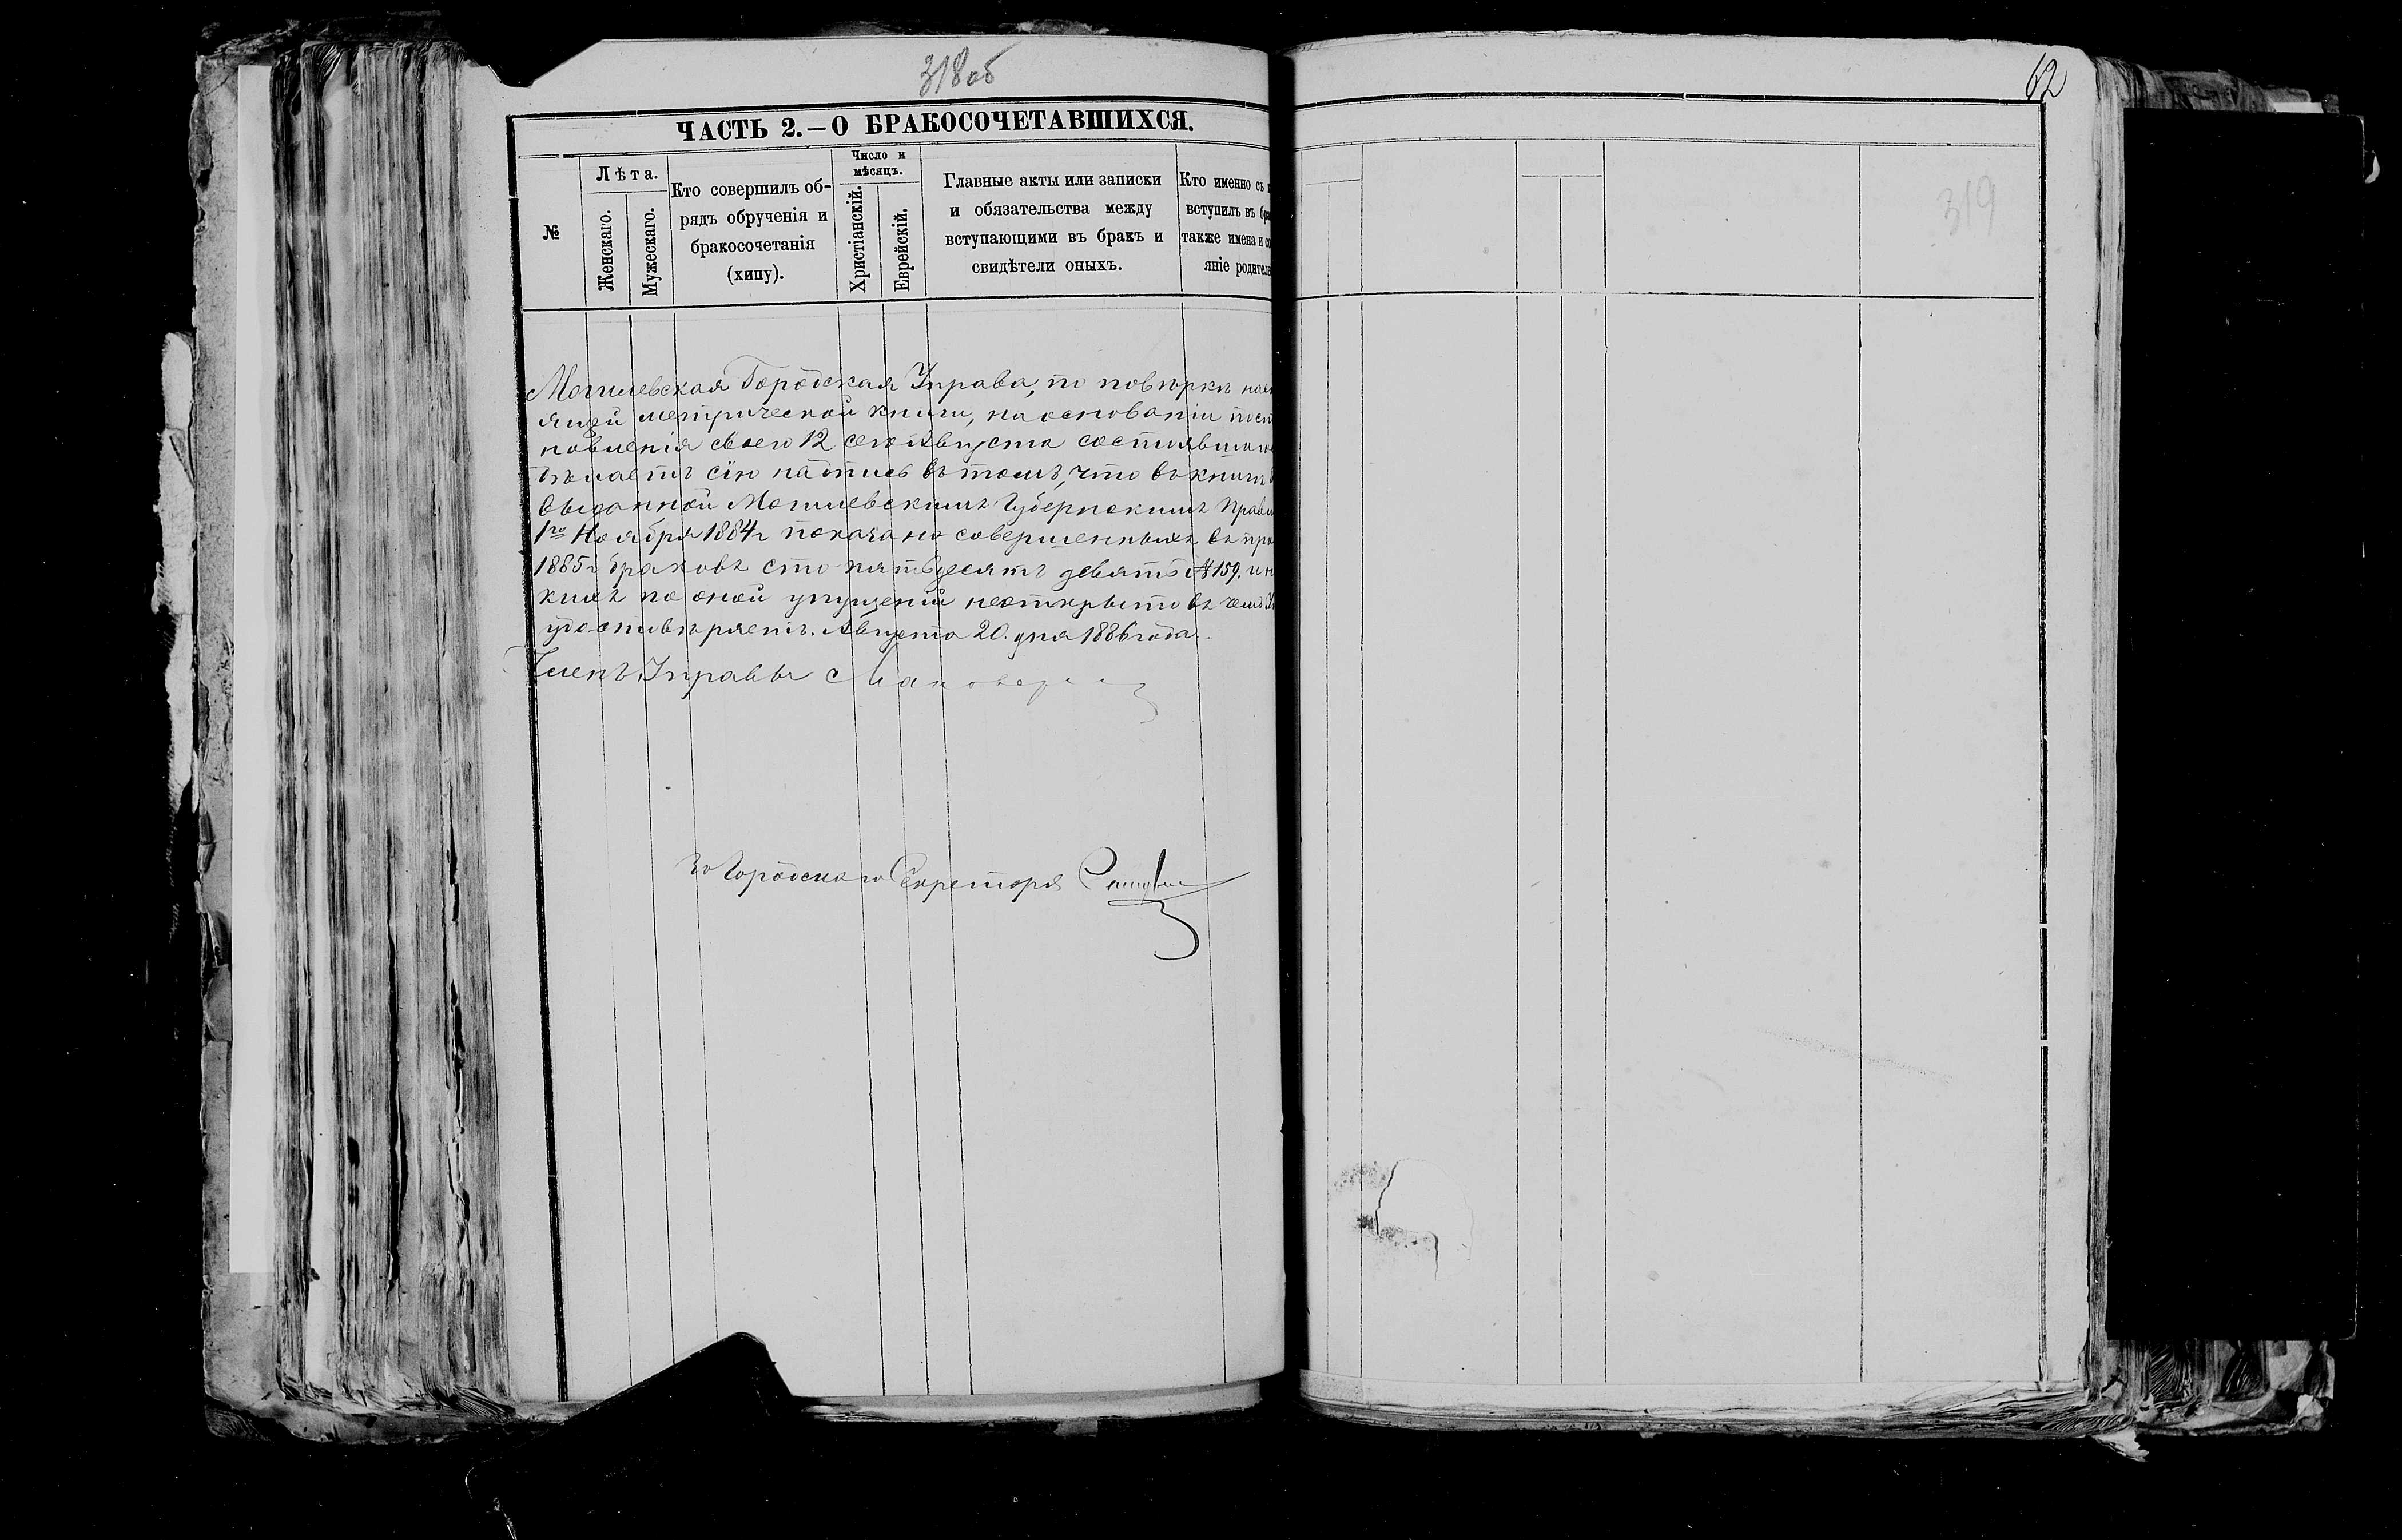 318об
62
ЧАСТЬ 2.—О БРАКОСОЧЕТАВШИХСЯ.
№
Лѣта.
Женскаго.
Мужескаго.
Кто совершилъ об-
рядъ обрученія и
бракосочетанія
(хипу).
Число и
мѣсяцъ.
Христіанскій.
Еврейскій.
Главные акты или записки
и обязательства между
вступающими въ бракъ и
свидѣтели оныхъ.
Кто именно съ
вступилъ въ бра
также имена и со
яніе родителе
319
Могилевская Городская Управа, по повѣркѣ наст
ящей метрической книги, на основаніи пост
новленія своего 12 сего Августа состоявшаго
дѣлаетъ сію надпись въ томъ, что въ книгѣ
выданной Могилевскимъ Губернскимъ Правл
1го Ноября 1884 г показано совершенныхъ въ про
1885 г браковъ сто пятьдесятъ девять № 159. и н
кихъ по оной упущеній неоткрыто въ чемъ
удостовѣряетъ. Августа 20. дня 1886 года.
Членъ Управы
За Городскаго Секретаря